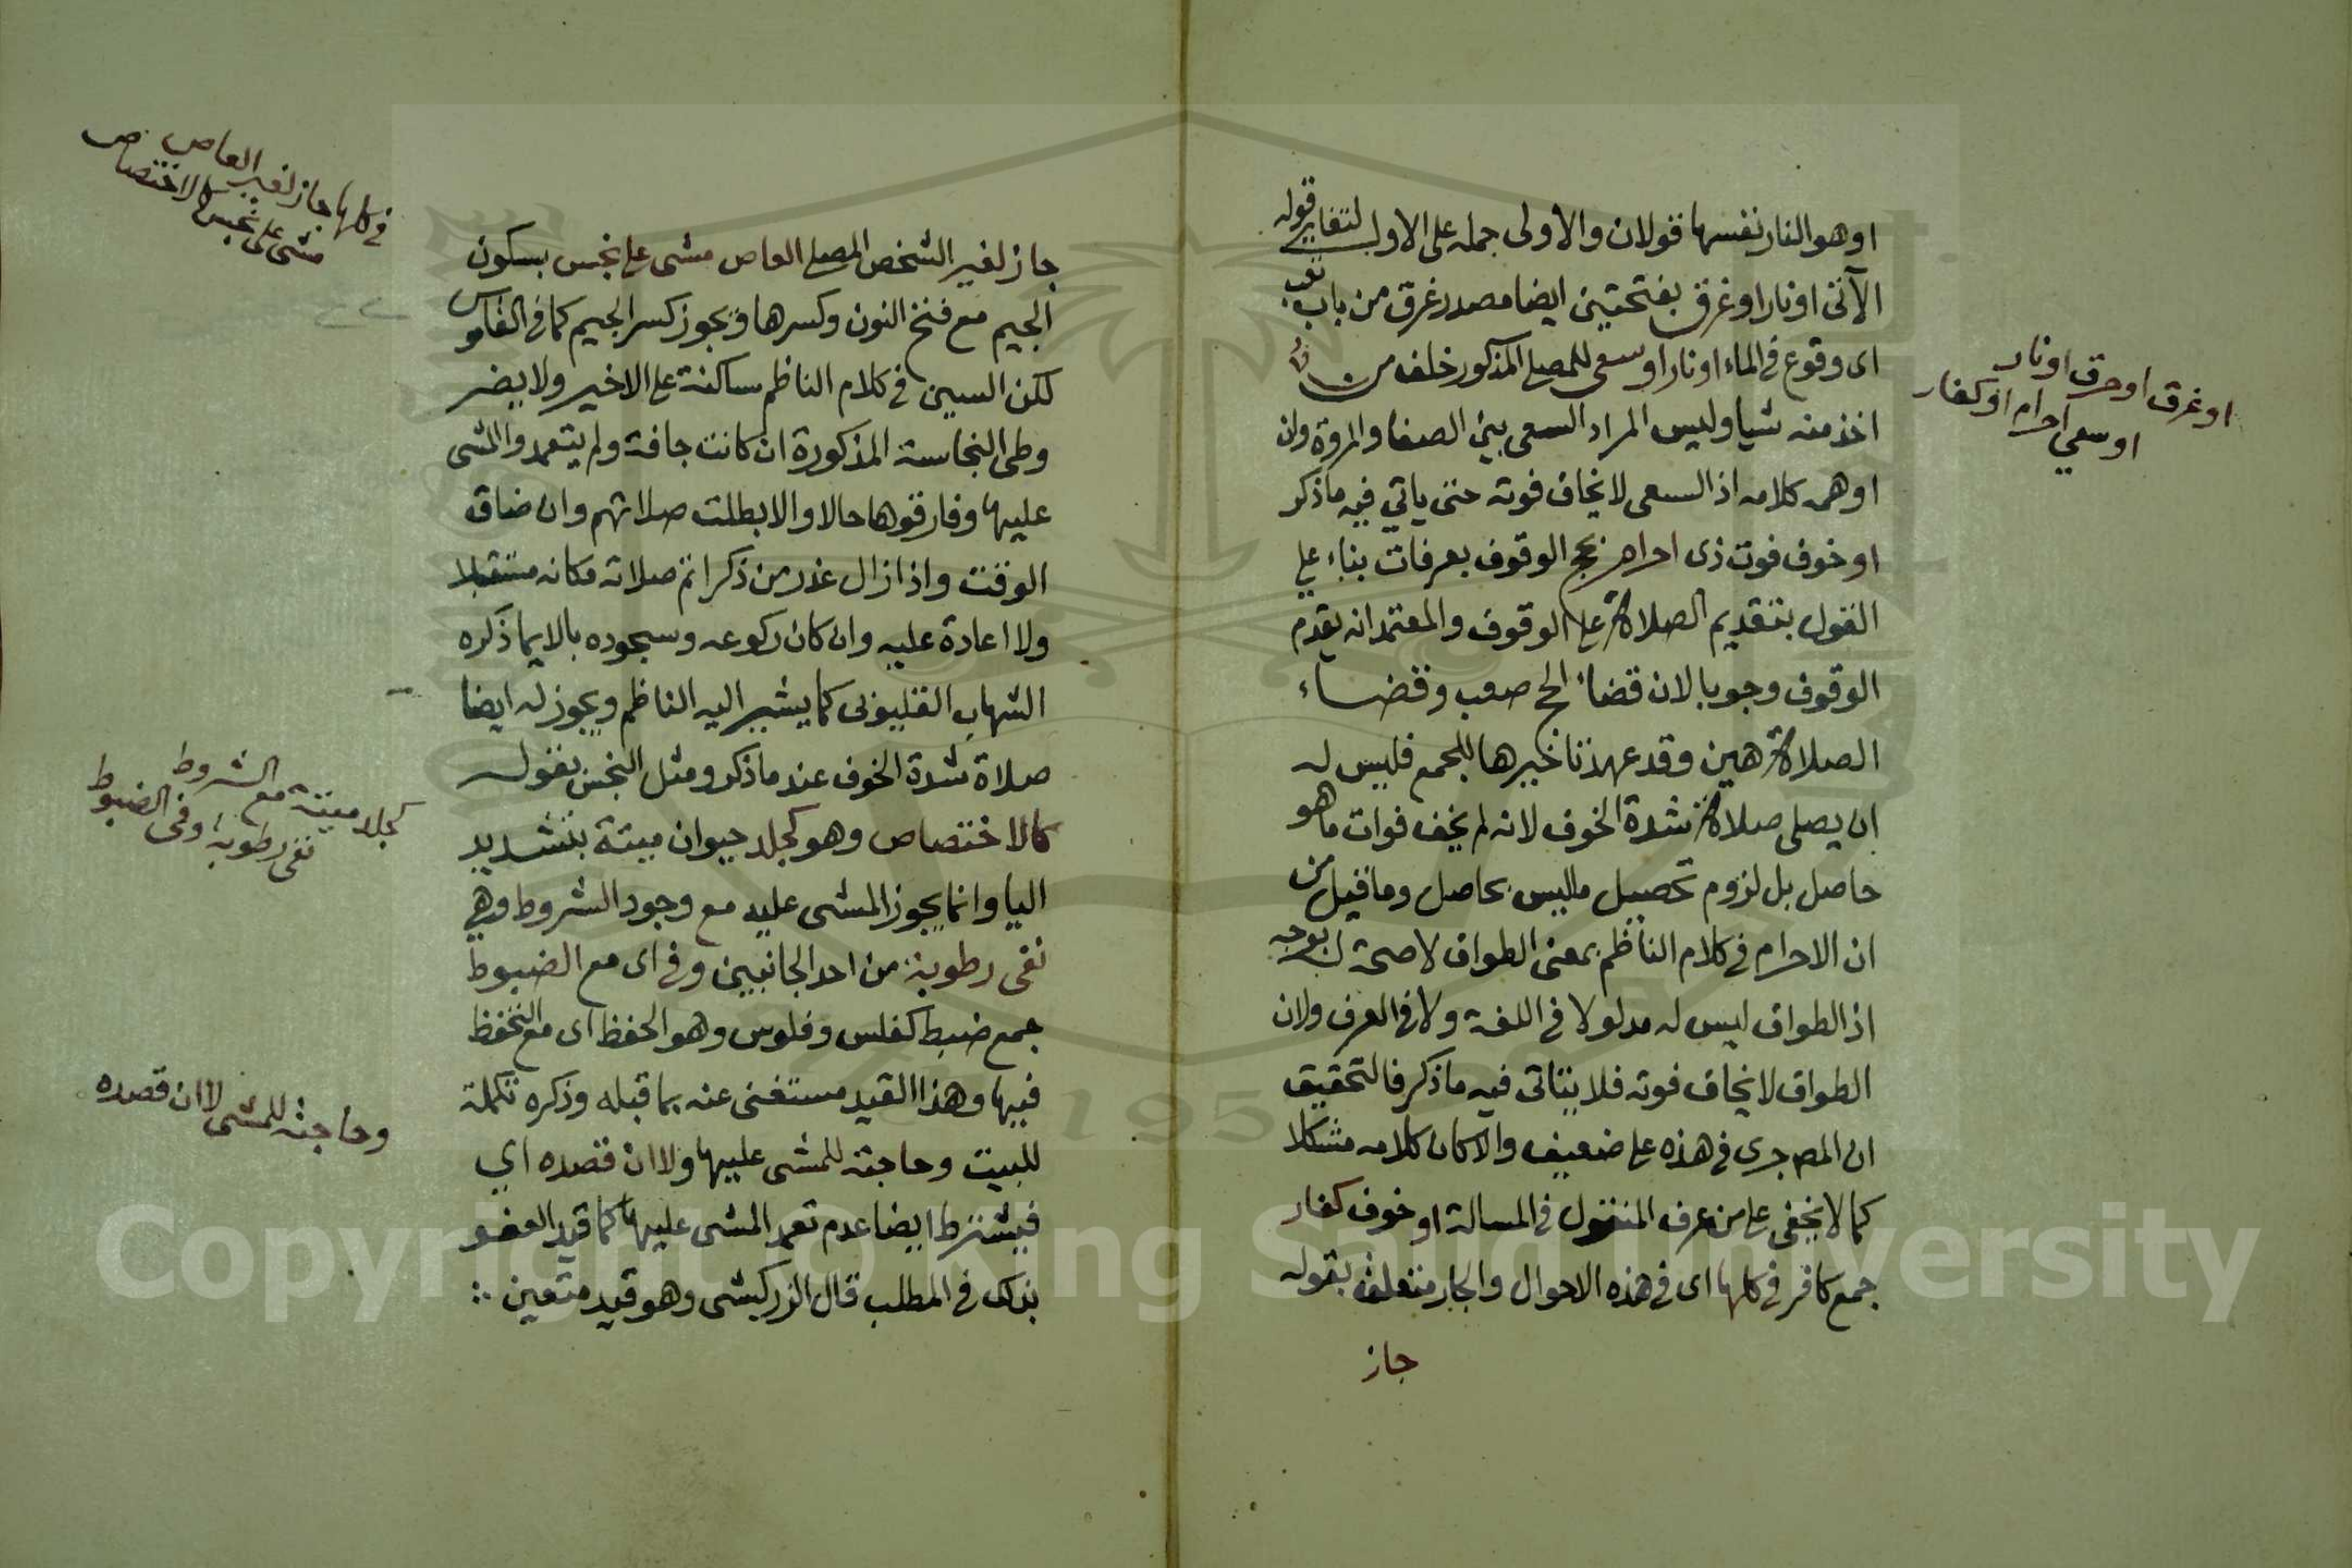 او هو النار نفسها قولان والاولى حمله على الاول لتغاير قوله
الآتى او نار او غرق بفتحتين ايضا مصدر غرق من باب تعب
اى وقوع فى الماء او نار او سعى للمصلى المذكور خلف من
اخذ منه شيا وليس المراد السعى بين الصفا والمروة وان
اوهمه كلامه اذ السعى لا يخاف فوته حتى ياتي فيه ما ذكر
او خوف فوت ذى احرام بحج الوقوف بعرفات بناء على
القول بتقديم الصلاة على الوقوف والمعتمد انه يقدم
الوقوف وجوبا لان قضاء الحج صعب وقضاء
الصلاة هين وقد عهد تاخيرها للجمع فليس له
ان يصلى صلاة شدة الخوف لانه لم يخف فوات ما هو
حاصل بل لزوم تحصيل ماليس بحاصل وما قيل من
ان الاحرام فى كلام الناظم بمعنى الطواف لا صحة له بوجه
اذ الطواف ليس له مدلولا فى اللغة ولا فى العرف ولان
الطواف لا يخاف فوته فلا يتاتى فيه ما ذكر فالتحقيق
ان المص جرى فى هذه على ضعيف والا كان كلامه مشكلا
كما لا يخفى على من عرف المنقول فى المسالة او خوف كفار
جمع كافر فى كلها اى فى هذه الاحوال والجار متعلق بقوله
جاز
او غرق او حرق او نار
او سعي احرام او كفار
جاز لغير الشخص المصلى العاص مشى على نجس بسكون
الجيم مع فتح النون وكسرها ويجوز كسر الجيم كما فى القاموس
لكن السين فى كلام الناظم ساكنة على الاخير ولا يضر
وطى النجاسة المذكورة ان كانت جافة ولم يتعمدوا المشى
عليها وفارقوها حالا والا بطلت صلاتهم وان ضاق
الوقت واذا زال عذر من ذكر اتم صلاته مكانه مستقبلا
ولا اعادة عليه وان كان ركوعه وسجوده بالايما ذكره
الشهاب القليوبى كما يشير اليه الناظم ويجوز له ايضا
صلاة شدة الخوف عند ما ذكر ومثل النجس بقوله
كالاختصاص وهو كجلد حيوان ميتة بتشديد
اليا وانما يجوز المشى عليه مع وجود الشروط وهي
نفى رطوبة من احد الجانبين وفى اى مع الضبوط
جمع ضبط كفلس وفلوس وهو الحفظ اى مع التحفظ
فيها وهذا القيد مستغنى عنه بما قبله وذكره تكملة
للبيت وحاجة للمشى عليها ولا ان قصده اي
فيشترط ايضا عدم تعمد المشى عليها كما قيد العفو
بذلك فى المطلب قال الزركشى وهو قيد متعين
فى كلها جاز لغير العاص
مشى على نجس كالاختصاص
كجلد ميتة مع الشروط
نفى رطوبة وفى الضبوط
وحاجة للمشى لا ان قصده
Copyright © King Saud University
1957